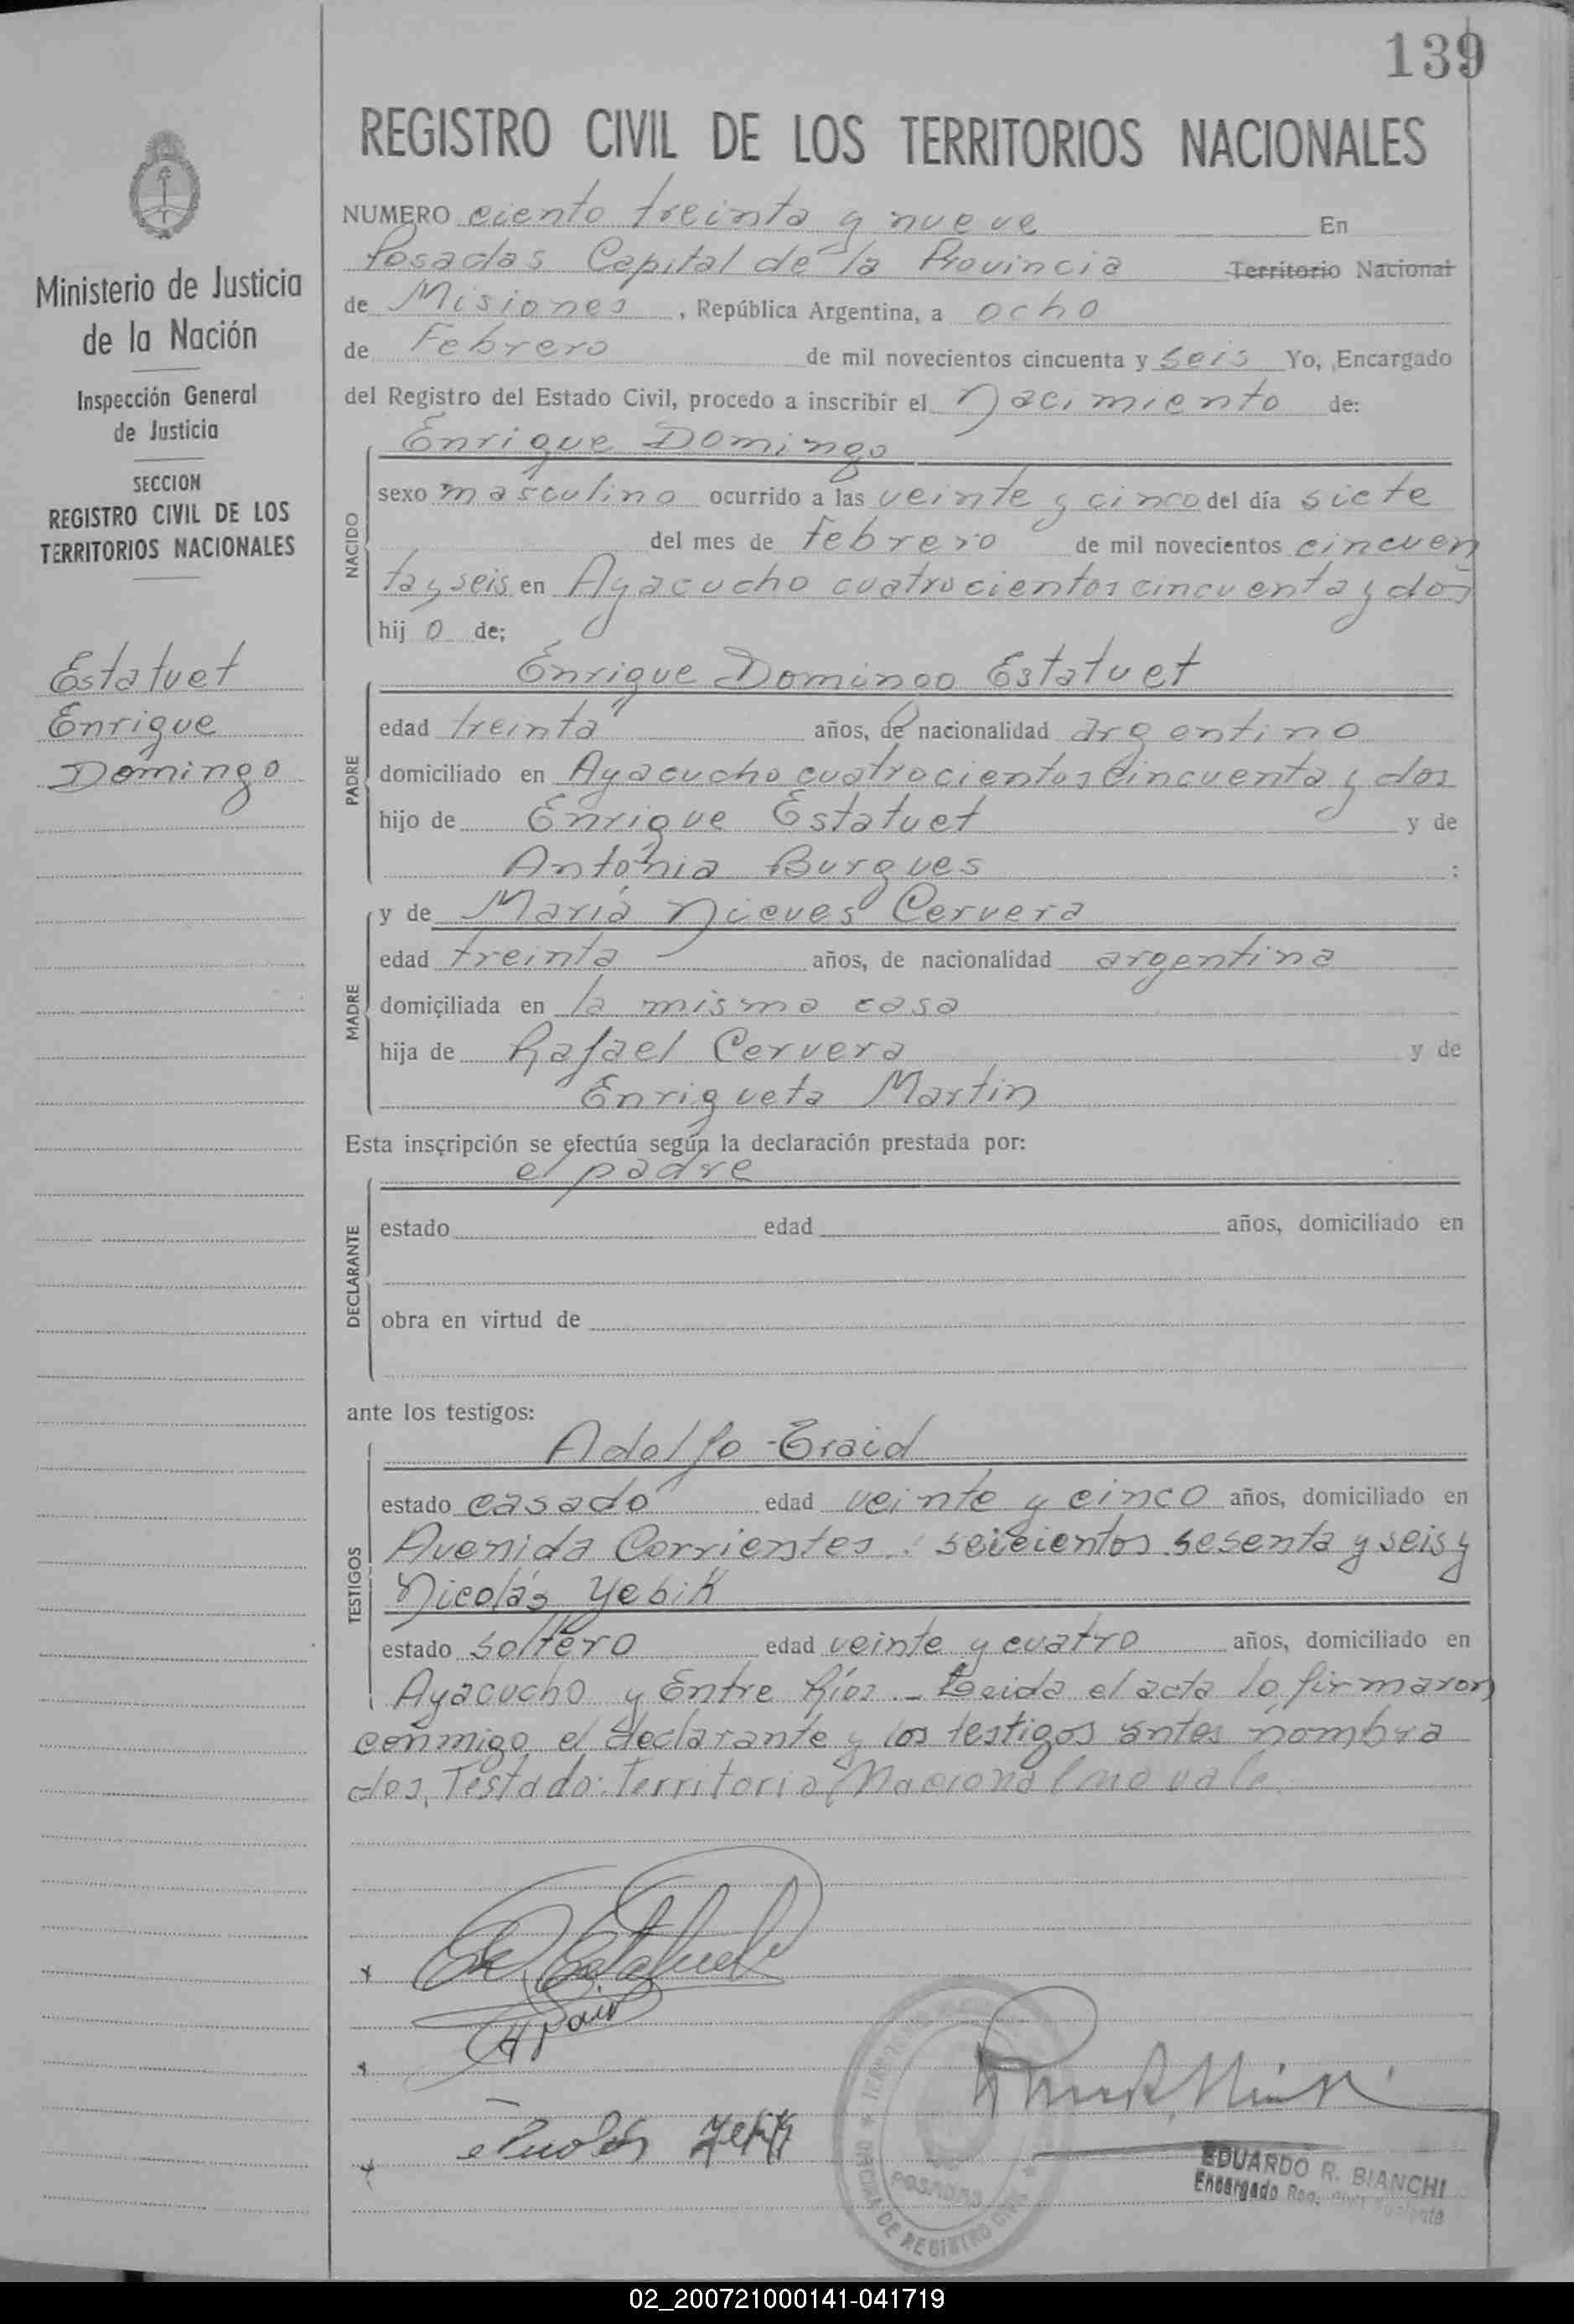 139
REGISTRO CIVIL DE LOS TERRITORIOS NACIONALES
Ministerio de Justicia
de la Nación
Inspección General
de Justicia
SECCION
REGISTRO CIVIL DE LOS
TERRITORIOS NACIONALES
Estatuet
Enrique
Domingo
NUMERO ciento treinta y nueve En
Posadas Capital de la Provincia Territorio Nacional
de Misiones, República Argentina, a ocho
de Febrero de mil novecientos cincuenta y seis Yo, Encargado
del Registro del Estado Civil, procedo a inscribir el Nacimiento de:
NACIDO
Enrique Domingo
sexo masculino ocurrido a las veinte y cinco del día siete
del mes de Febrero de mil novecientos cincuen
ta y seis en Ayacucho cuatrocientos cincuenta y dos
hij o de;
PADRE
Enrique Domingo Estatuet
edad treinta años, de nacionalidad argentino
domiciliado en Ayacucho cuatrocientos cincuenta y dos
hijo de Enrique Estatuet y de
Antonia Burgues :
MADRE
y de María Nieves Cervera
edad treinta años, de nacionalidad argentina
domiciliada en la misma casa
hija de Rafael Cervera y de
Enriqueta Martin
Esta inscripción se efectúa según la declaración prestada por:
DECLARANTE
el padre
estado edad años, domiciliado en
obra en virtud de
ante los testigos:
TESTIGOS
Adolfo Eraid
estado casado edad veinte y cinco años, domiciliado en
Avenida Corrientes seiscientos sesenta y seis y
Nicolás Yebik
estado soltero edad veinte y cuatro años, domiciliado en
Ayacucho y Entre Ríos.- Leida el acta lo firmaron
conmigo el declarante y los testigos antes nombra
dos, Testado: Territorio Nacional no vale
E. D. Estatuet
Nicolás Yebik
POSADAS
OFICINA DE REGISTRO CIVIL
EDUARDO R. BIANCHI
Encargado Reg. Civil Suplente
02_200721000141-041719